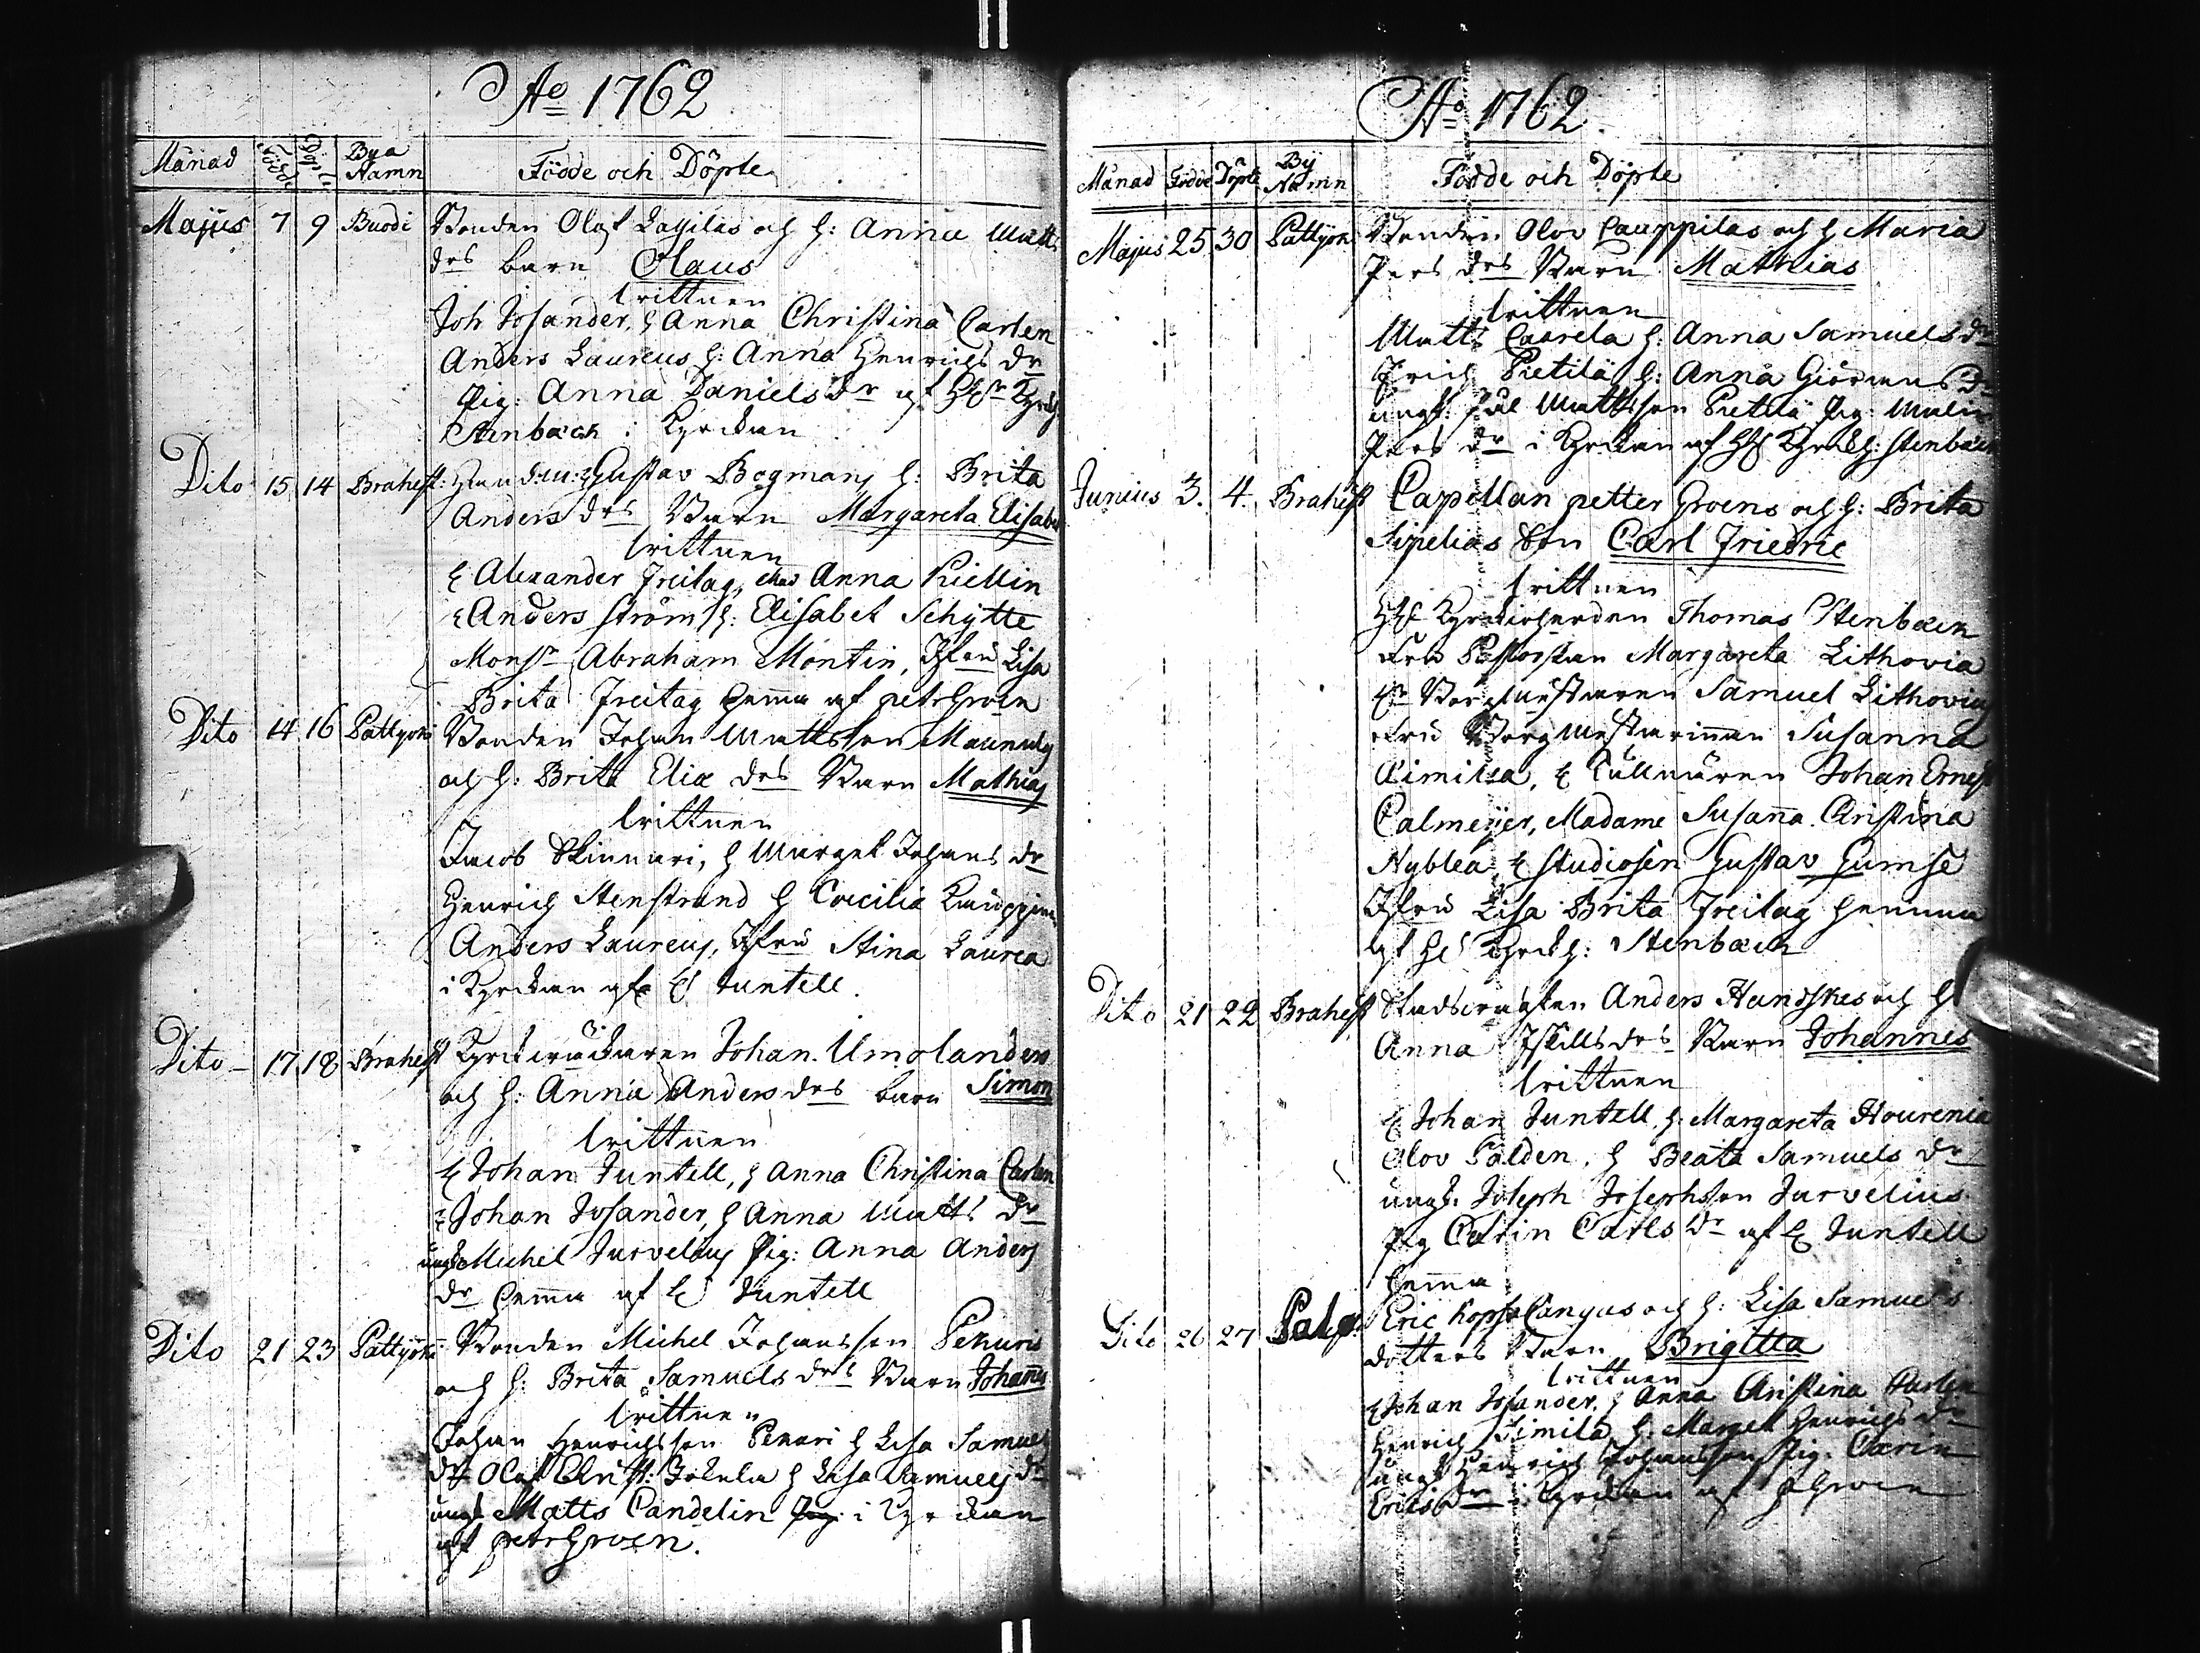 Ao 1762
Månad Födde Döpte Bya Namn Födde och Döpte
Majus 7 9 Buodi Bonden Olof Lassilas och h: Anna Matts
drs barn Olaus
wittnen
Joh Josander, h Anna Christina Carlen
Anders Laureus h: Anna Henrichs dr
Pig: Anna Daniels dr af HEr Kyrkh
Stenbæck i Kyrckan
Dito 15 14 Brahest: Gustav Bogmans h: Brita
Anders drs Barn Margareta Elisabet
wittnen
H Alexander Freitag, Mad Anna Kiellin
H Anders ström h: Elisabet Schytte
Monsr Abraham Montin, Jfru Lisa
Brita Freitag hema af petr Groen
Dito 14 16 Pattijoki Bonden Johan Mattsson Maunulas
och h: Brita Eliæ drs Barn Mathias
wittnen
Jacob Skinnari, h Marget Johans dr
Henrich Stenstrand h Cæcilia
Anders Laureus, Jfru Stina Laurea
i Kyrckan af H Juntell.
Dito 17 18 Brahest Kyrckiowäcktaren Johan Umolanders
och h: Anna Anders drs barn Simon
wittnen
H Johan Juntell, h Anna Christina Carlen
H Johan Josander, h Anna Matts dr
ungk Michel Jurvelius Pig: Anna Anders
dr hemma af H Juntell
Dito 21 23 Pattijoki Bonden Michel Johansson Pekuris
och h: Brita Samuels drs Barn Johannes
wittnen
Johan Henrichsson Pekari h Lisa Samuels
dr Olof Jokela h Lisa Samuels dr
ungk Matts Candelin Pig: i Kyrckan
af petr Groen.
Ao 1762
Månad Födde Döpte By Namn Födde och Döpte
Majus 25 30 Pattijok Bonden Olov Cauppilas och h Maria
Pers drs Barn Mathias
wittnen
Matts Caarela h: Anna Samuels dr
Erich Pietilä h: Anna Giörans dr
ungk: Pål Mattsson Pietilä Pig: Malin
Pers dr i Kyrckan af HE Kyrckh: Stenbæck
Junius 3. 4. Brahest Capellan petter Groens och h: Brita
Sipelias Son Carl Friedric
wittnen
HE Kyrckioherden Thomas Stenbæck
Fru Pastorskan Margareta Lithovia
Hr Borgmästaren Samuel Lithovius
Fru Borgmästarinnan Susanna
Aimilæa, H Tullnären Johan Ernest
Calmeijer, Madame Susanna Christina
Nyblea, H Studiosen Gustav Gumse
Jfru Lisa Brita Freitag hemma
af HE Kyrckh: Stenbæck
Dito 21 22 Brahest Stadswagten Anders Handskes och h
Anna Iskills drs Barn Johannes
wittnen
H Johan Juntell, h: Margareta Hourenia
Olov Palden, h Beata Samuels dr
ungk. Joseph Josephsson Jurvelius
Pig Catrin Carls dr af H Juntell
hemma
Dito 26 27 Palo Eric Kopsa Cangas och h: Lisa Samuels
dotters Barn Brigitta
wittnen
H Johan Josander, h Anna Christina Carlen
Henrich Simila, h: Marget Henrichs dr
ungk Henrich Johansson Pig: Carin
Erics dr i Kyrckan af P Groen